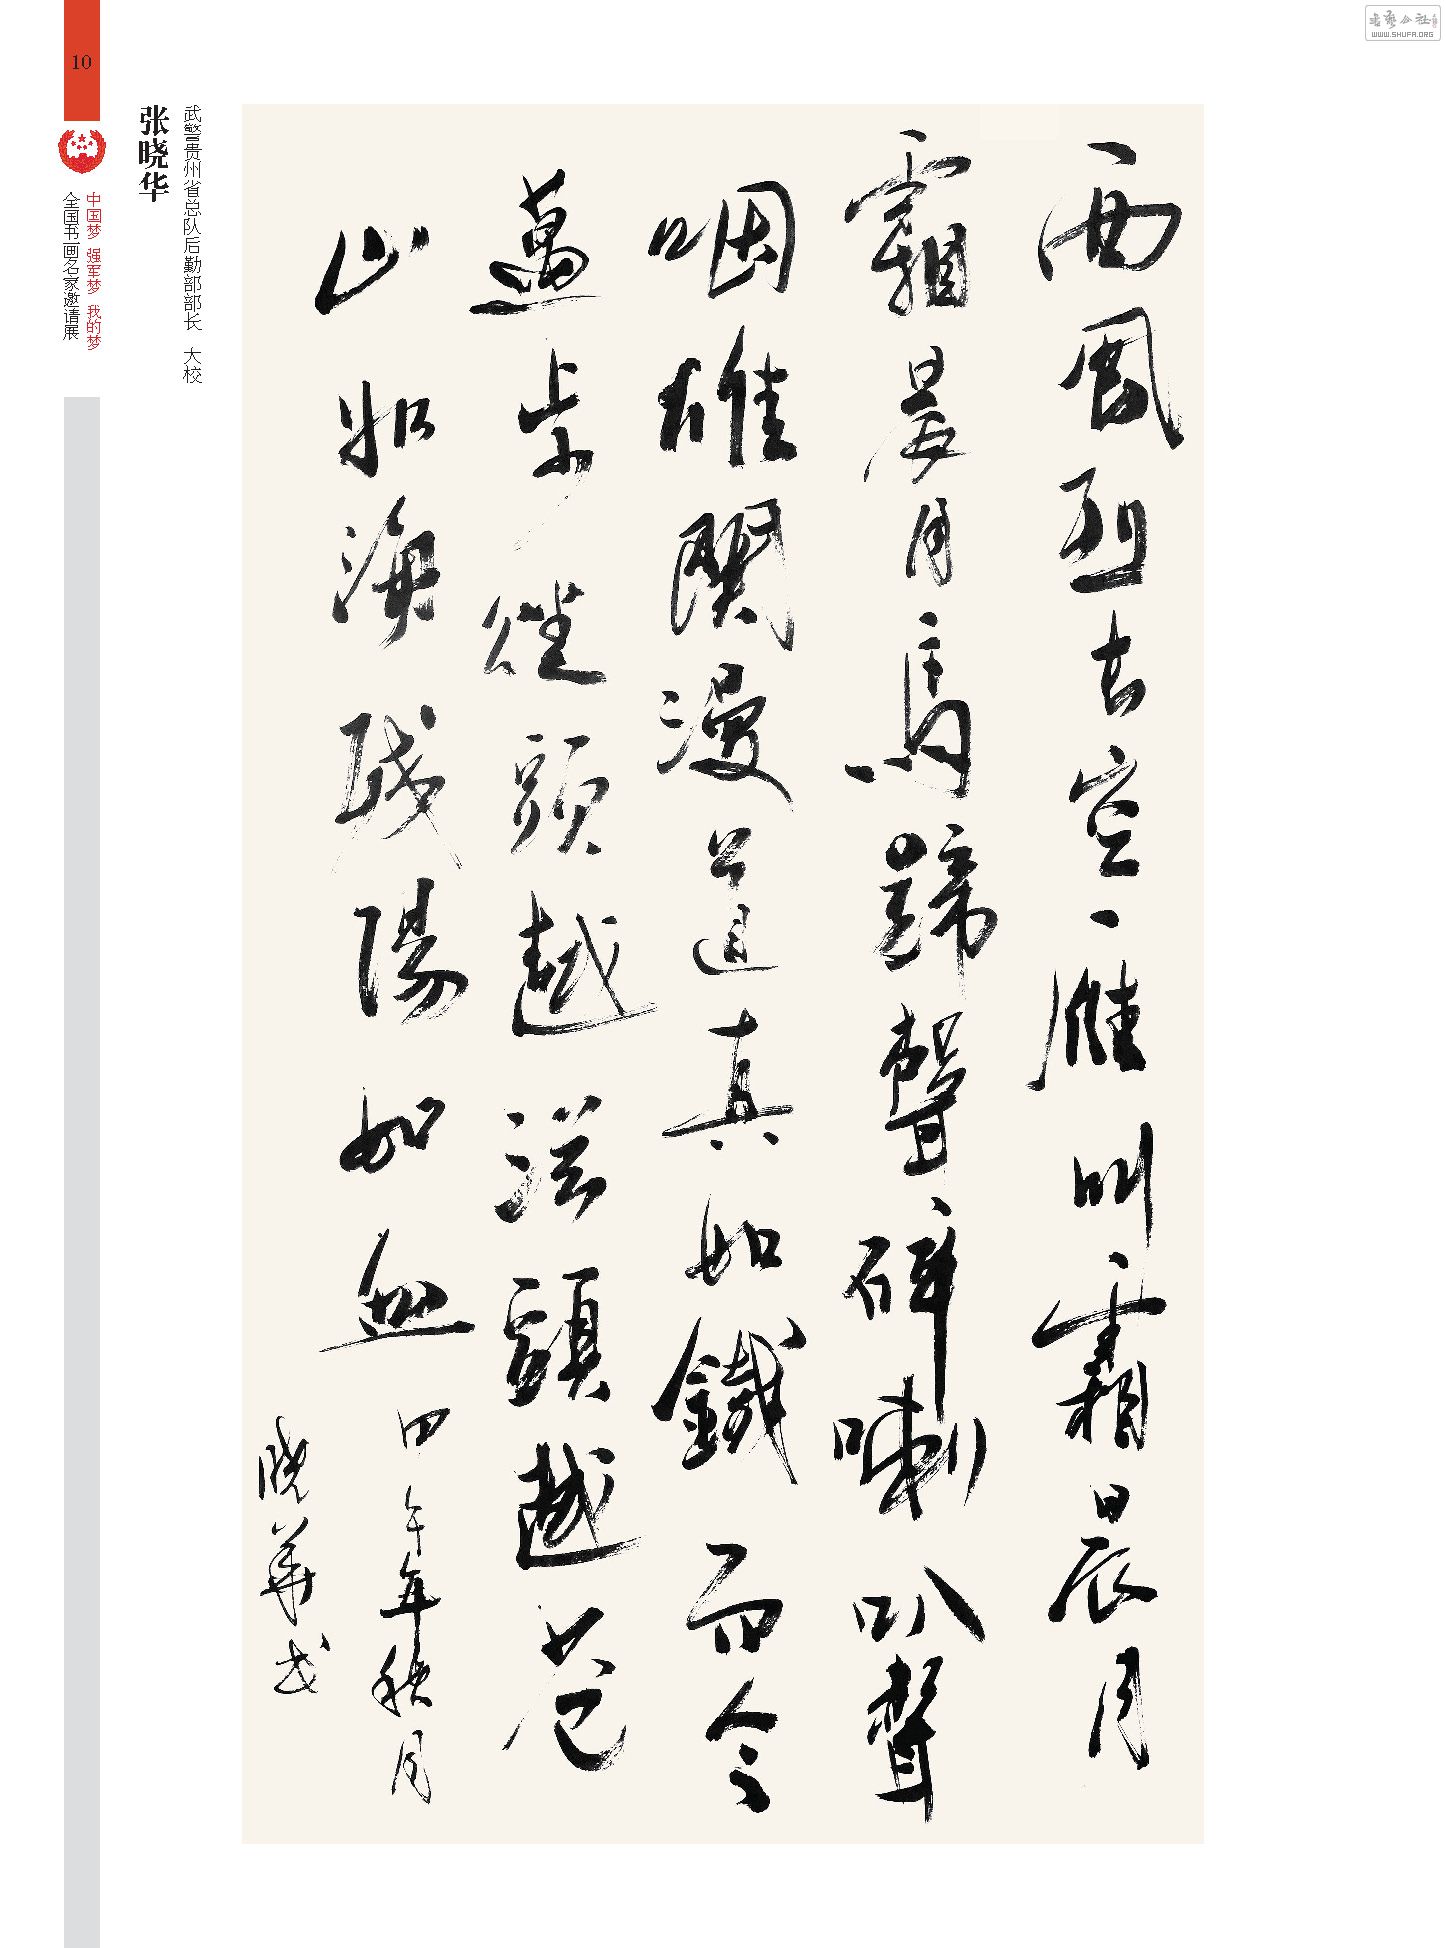 西風烈長空雁叫霜晨月
霜晨月馬蹄聲碎喇叭聲
咽雄關漫道真如鐵而今
邁步從頭越從頭越蒼
山如海殘陽如血 甲午年秋月
晓華书
武警贵州省总队后勤部部长 大校
张晓华
10
中国梦 强军梦 我的梦
全国书画名家邀请展
书艺公社
WWW.SHUFA.ORG